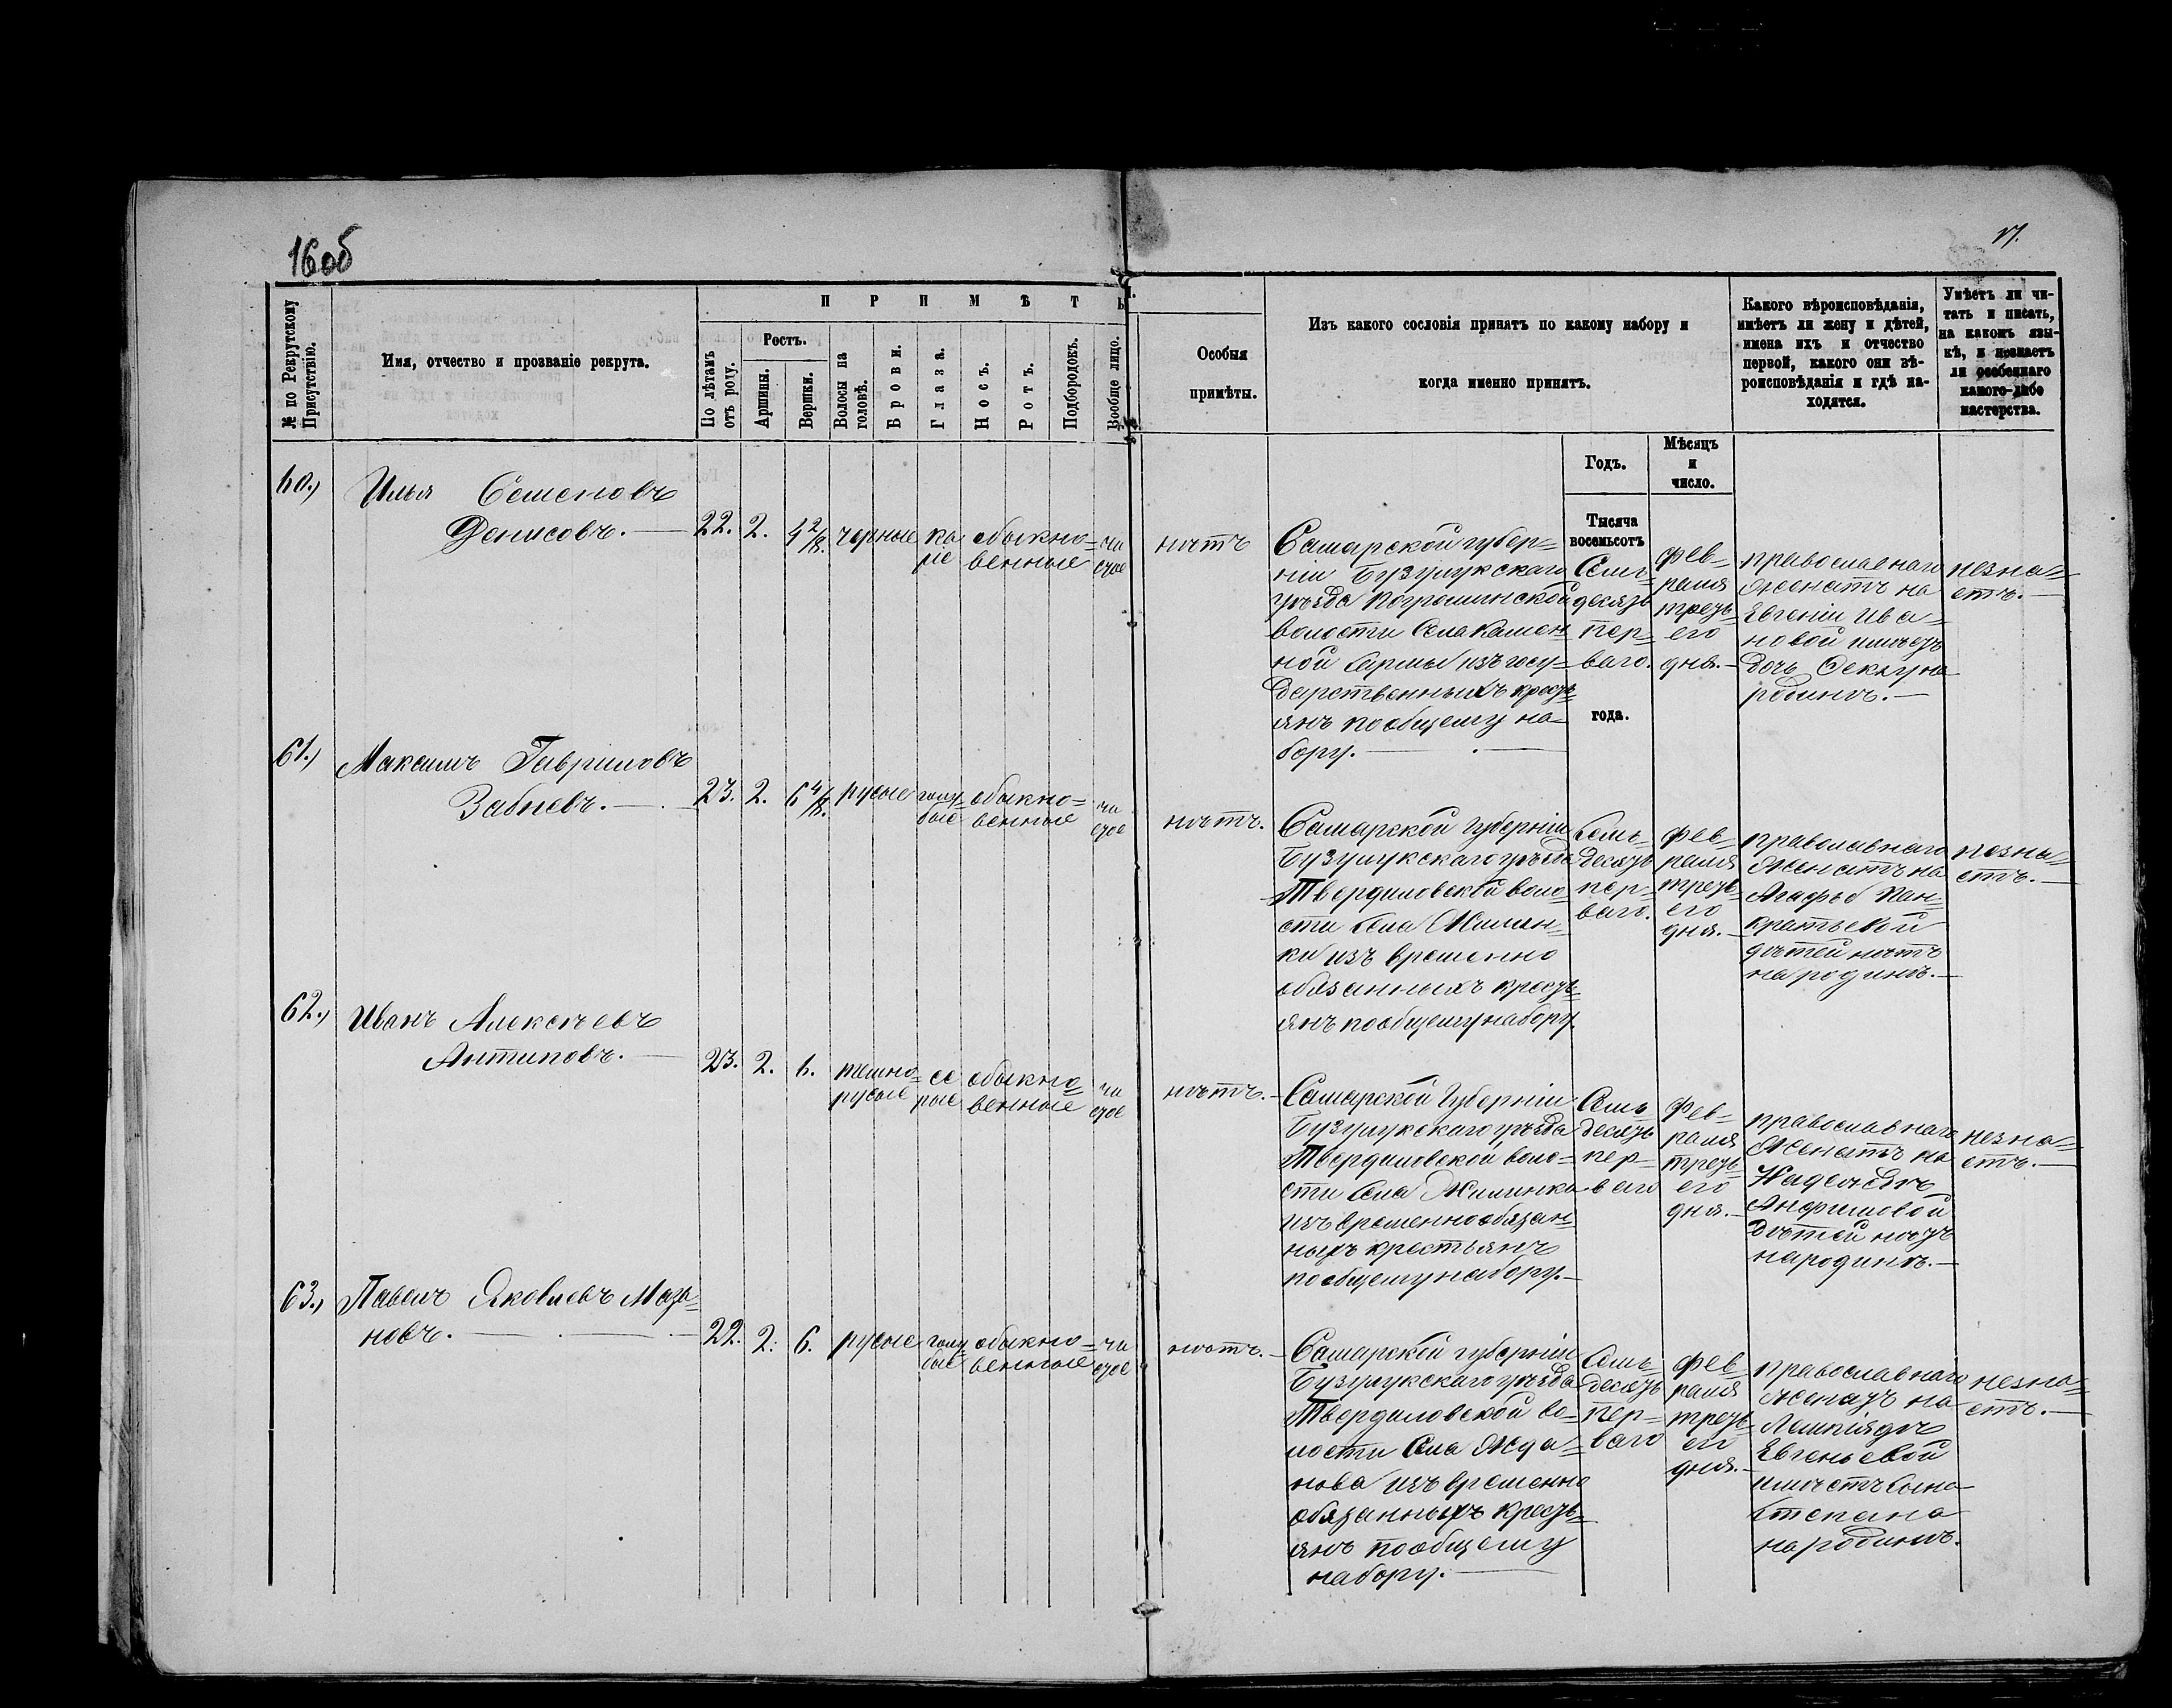 16об
17.
№ по Рекрутскому
Присутствію.
Имя, отчество и прозваніе рекрута.
ПРИМѢТЫ.
По лѣтамъ
отъ роду.
Ростъ.
Аршины.
Вершки.
Волосы на
головѣ.
Брови.
Глаза.
Носъ.
Ротъ.
Подбородокъ.
Вообще лицо.
Особыя
примѣты.
Изъ какого сословія принятъ по какому набору и
когда именно принятъ.
Какого вѣроисповѣданія,
имѣетъ ли жену и дѣтей,
имена ихъ и отчество
первой, какого они вѣ-
роисповѣданія и гдѣ на-
ходятся.
Умѣетъ ли чи-
тать и писать,
на какомъ язы-
кѣ, и незнаетъ
ли особеннаго
какого-либо
мастерства.
Годъ.
Мѣсяцъ
и
число.
Тысяча
восемьсотъ
года.
60.)
Илья Семеновъ
Денисовъ.
22.
2.
4 2/8.
черные
ка
ріе
обыкно=
венные
чи
стое
нѣтъ
Самарской губер=
ніи Бузулукскаго
уѣзда Погроминской
волости Села Камен
ной Сармы изъ госу=
дарственныхъ кресть
янъ по общему на
бору.
Семь
десятъ
пер=
ваго.
Фев=
раля
треть
его
дня.
православнаго
женатъ на
Евгеніи Ива=
новой имѣетъ
дочь Феклу на
родинѣ.
незна=
етъ.
61.)
Максимъ Гавриловъ
Забневъ.
23.
2.
6 4/8.
русые
голу
бые
обыкно=
венные
чи
стое
нѣтъ.
Самарской Губерніи
Бузулукскаго уѣзда
Твердиловской воло
сти Села Жилин
ки изъ временно
обязанныхъ кресть
янъ по общему набору.
Семь
десятъ
пер=
ваго.
Фев=
раля
треть
его
дня.
православнаго
женатъ на
Агафьѣ Пан
кратьевой
дѣтей нѣтъ
на родинѣ.
незна=
етъ.
62.)
Иванъ Алексѣевъ
Антиповъ.
23.
2.
6.
темно=
русые
се
рые
обыкно
венные
чи
стое
нѣтъ.
Самарской Губерніи
Бузулукскаго уѣзда
Твердиловской воло=
сти Села Жилинки
изъ временнообязан
ныхъ крестьянъ
по общему набору.
Семь
десятъ
пер=
ваго
Фев=
раля
треть
его
дня.
православнаго
женатъ на
Надеждѣ
Анфимовой
дѣтей нѣтъ
на родинѣ.
незна=
етъ.
63.)
Павелъ Яковлевъ Маза=
новъ.
22.
2.
6.
русые
голу
бые
обыкно=
венные
чи
стое
нѣтъ.
Самарской губерніи
Бузулукскаго уѣзда
Твердиловской во=
лости Села Жда=
нова изъ временно
обязанныхъ кресть
янъ по общему
набору.
Семь
десятъ
пер=
ваго
Фев=
раля
треть
его
дня.
православнаго
женатъ на
Евгеньевой
имѣетъ сына
Степана
на родинѣ.
незна=
етъ.